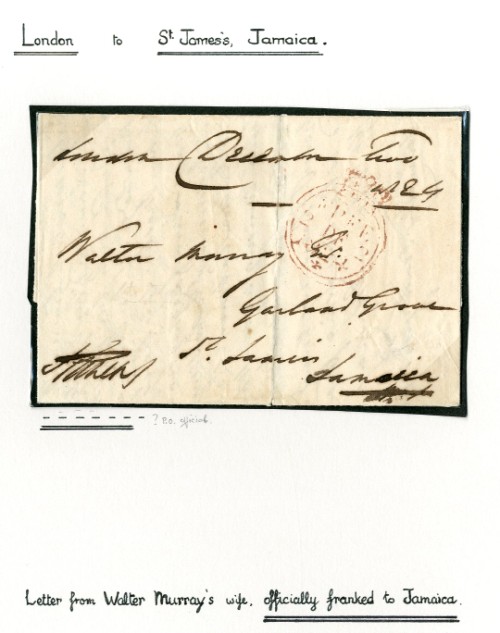 London to St. James's, Jamaica.
London December Two
1824
Walter Murray Esqr.
Garland Grove
St. James's
Jamaica
? P.O. official.
Letter from Walter Murray's wife, officially franked to Jamaica.